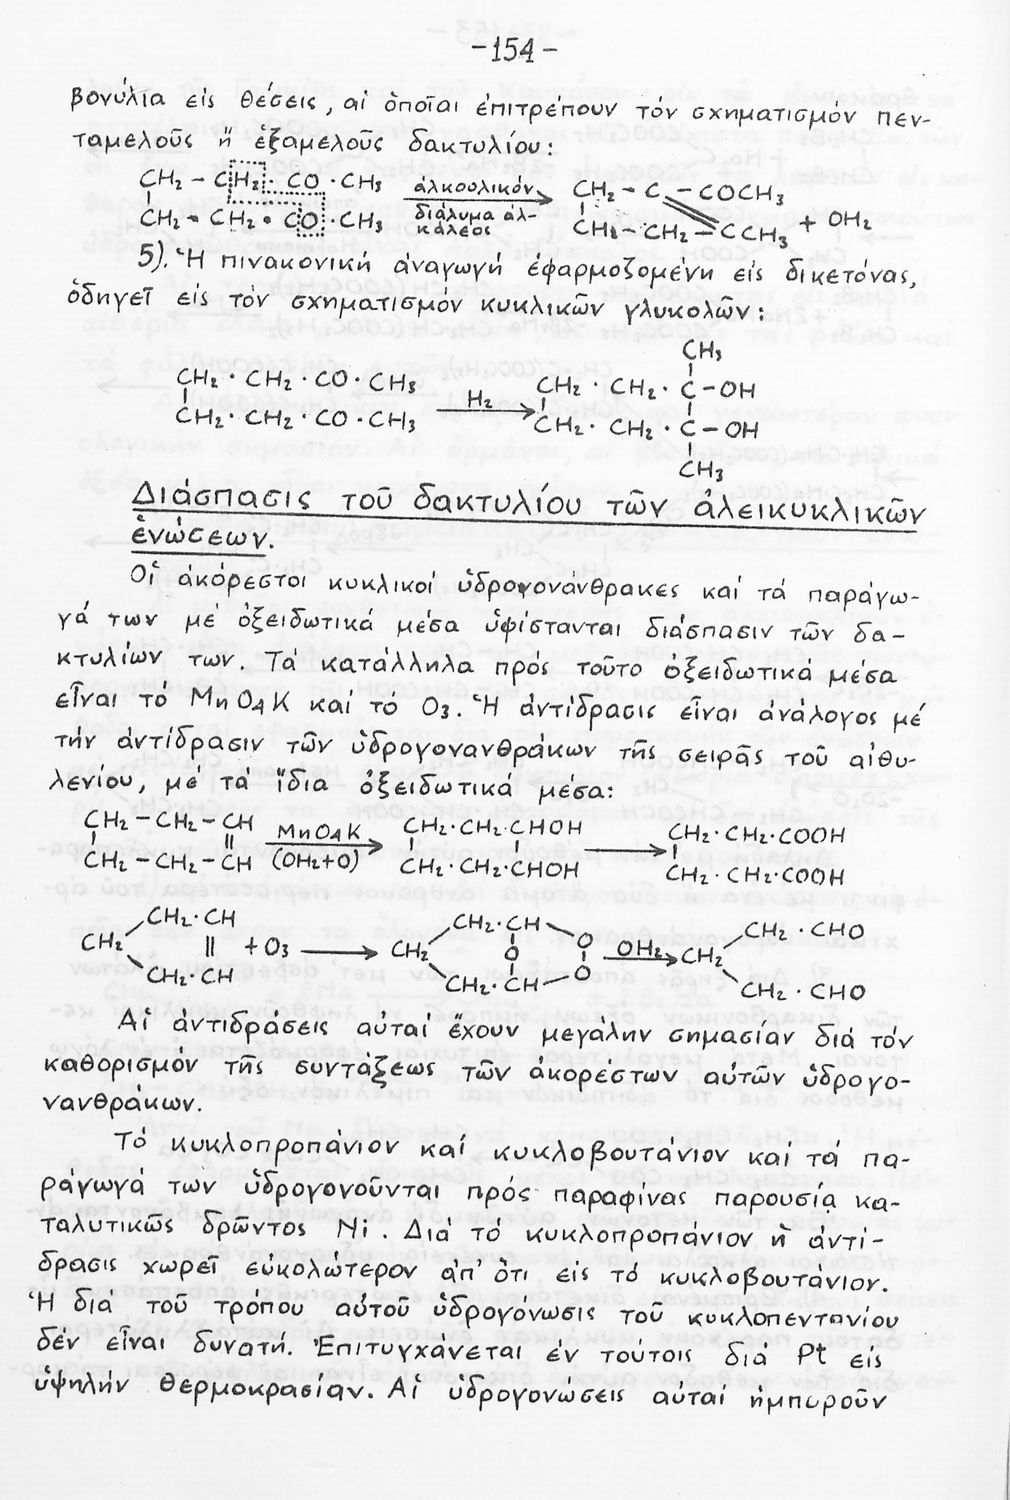 -154-
βονύλια εἰς θέσεις, αἱ ὁποῖαι ἐπιτρέπουν τόν σχηματισμόν πεν-
ταμελοῦς ἤ ἑξαμελοῦς δακτυλίου:
CH₂ - CH₂ · CO · CH₃ αλκουλικόν CH₂ - C - COCH₃
CH₂ - CH₂ · CO · CH₃ διάλυμα ἀλ- CH₂ - CH₂ - CCH₃ + OH₂
κάλεος
5). Ἡ πινακονική ἀναγωγή ἐφαρμοζομένη εἰς δικετόνας,
ὁδηγεῖ εἰς τόν σχηματισμόν κυκλικῶν γλυκολῶν:
CH₃
CH₂ · CH₂ · CO · CH₃ CH₂ · CH₂ · C - OH
H₂
CH₂ · CH₂ · CO · CH₃ CH₂ · CH₂ · C - OH
CH₃
Διάσπασις τοῦ δακτυλίου τῶν ἀλεικυκλικῶν
ἑνώσεων.
Οἱ ἀκόρεστοι κυκλικοί ὑδρογονάνθρακες καί τά παράγω-
γά των μέ ὀξειδωτικά μέσα ὑφίστανται διάσπασιν τῶν δα-
κτυλίων των. Τά κατάλληλα πρός τοῦτο ὀξειδωτικά μέσα
εἶναι τό MnO₄K καί τό O₃. Ἡ ἀντίδρασις εἶναι ἀνάλογος μέ
τήν ἀντίδρασιν τῶν ὑδρογονανθράκων τῆς σειρᾶς τοῦ αἰθυ-
λενίου, μέ τά ἴδια ὀξειδωτικά μέσα:
CH₂ - CH₂ - CH MnO₄K CH₂·CH₂·CHOH CH₂·CH₂·COOH
CH₂ - CH₂ - CH (OH₂+O) CH₂·CH₂·CHOH CH₂·CH₂·COOH
CH₂·CH CH₂·CH O CH₂ · CHO
CH₂ || + O₃ CH₂ O OH₂ CH₂
CH₂·CH CH₂·CH O CH₂ · CHO
Αἱ ἀντιδράσεις αὐταί ἔχουν μεγάλην σημασίαν διά τόν
καθορισμόν τῆς συντάξεως τῶν ἀκορέστων αὐτῶν ὑδρογο-
νανθράκων.
Τό κυκλοπροπάνιον καί κυκλοβουτάνιον καί τά πα-
ράγωγά των ὑδρογονοῦνται πρός παραφίνας παρουσίᾳ κα-
ταλυτικῶς δρῶντος Ni. Διά τό κυκλοπροπάνιον ἡ ἀντί-
δρασις χωρεῖ εὐκολώτερον ἀπ' ὅτι εἰς τό κυκλοβουτάνιον.
Ἡ διά τοῦ τρόπου αὐτοῦ ὑδρογόνωσις τοῦ κυκλοπεντανίου
δέν εἶναι δυνατή. Ἐπιτυγχάνεται ἐν τούτοις διά Pt εἰς
ὑψηλήν θερμοκρασίαν. Αἱ ὑδρογονώσεις αὐταί ἠμποροῦν